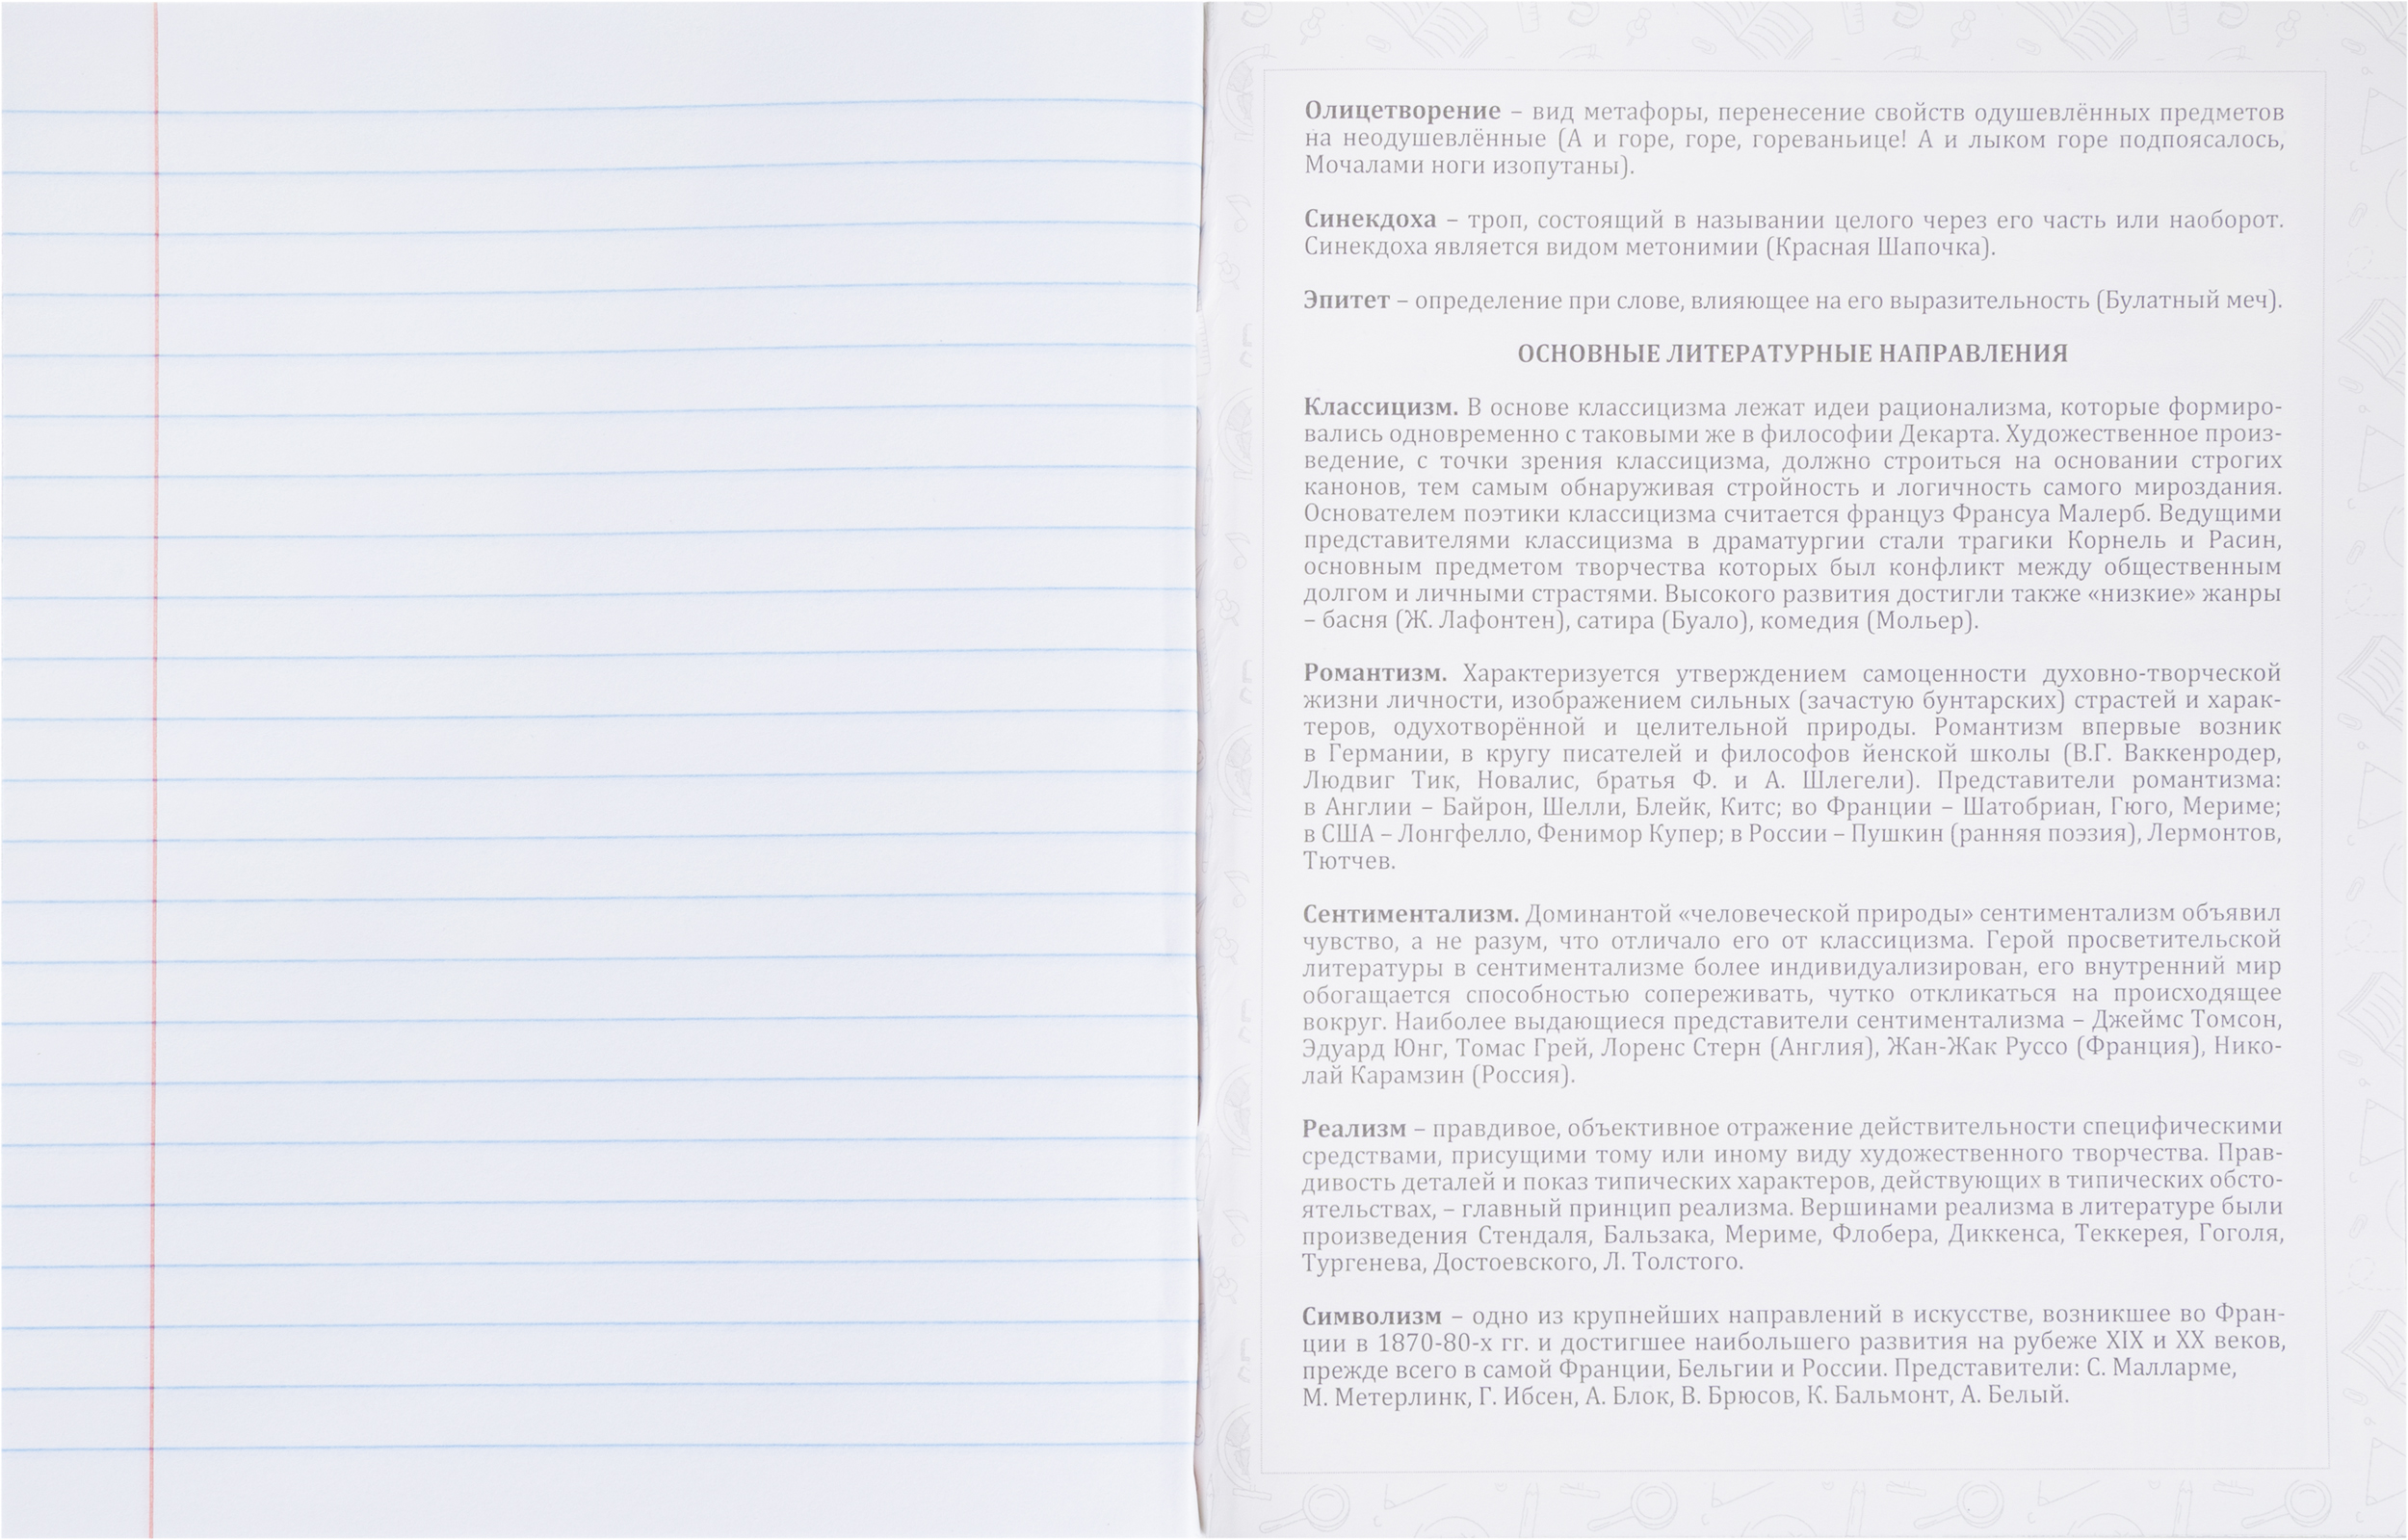 Олицетворение – вид метафоры, перенесение свойств одушевлённых предметов
на неодушевлённые (А и горе, горе, гореваньице! А и лыком горе подпоясалось,
Мочалами ноги изопутаны).
Синекдоха – троп, состоящий в назывании целого через его часть или наоборот.
Синекдоха является видом метонимии (Красная Шапочка).
Эпитет – определение при слове, влияющее на его выразительность (Булатный меч).
ОСНОВНЫЕ ЛИТЕРАТУРНЫЕ НАПРАВЛЕНИЯ
Классицизм. В основе классицизма лежат идеи рационализма, которые формиро-
вались одновременно с таковыми же в философии Декарта. Художественное произ-
ведение, с точки зрения классицизма, должно строиться на основании строгих
канонов, тем самым обнаруживая стройность и логичность самого мироздания.
Основателем поэтики классицизма считается француз Франсуа Малерб. Ведущими
представителями классицизма в драматургии стали трагики Корнель и Расин,
основным предметом творчества которых был конфликт между общественным
долгом и личными страстями. Высокого развития достигли также «низкие» жанры
– басня (Ж. Лафонтен), сатира (Буало), комедия (Мольер).
Романтизм. Характеризуется утверждением самоценности духовно-творческой
жизни личности, изображением сильных (зачастую бунтарских) страстей и харак-
теров, одухотворённой и целительной природы. Романтизм впервые возник
в Германии, в кругу писателей и философов йенской школы (В.Г. Ваккенродер,
Людвиг Тик, Новалис, братья Ф. и А. Шлегели). Представители романтизма:
в Англии – Байрон, Шелли, Блейк, Китс; во Франции – Шатобриан, Гюго, Мериме;
в США – Лонгфелло, Фенимор Купер; в России – Пушкин (ранняя поэзия), Лермонтов,
Тютчев.
Сентиментализм. Доминантой «человеческой природы» сентиментализм объявил
чувство, а не разум, что отличало его от классицизма. Герой просветительской
литературы в сентиментализме более индивидуализирован, его внутренний мир
обогащается способностью сопереживать, чутко откликаться на происходящее
вокруг. Наиболее выдающиеся представители сентиментализма – Джеймс Томсон,
Эдуард Юнг, Томас Грей, Лоренс Стерн (Англия), Жан-Жак Руссо (Франция), Нико-
лай Карамзин (Россия).
Реализм – правдивое, объективное отражение действительности специфическими
средствами, присущими тому или иному виду художественного творчества. Прав-
дивость деталей и показ типических характеров, действующих в типических обсто-
ятельствах, – главный принцип реализма. Вершинами реализма в литературе были
произведения Стендаля, Бальзака, Мериме, Флобера, Диккенса, Теккерея, Гоголя,
Тургенева, Достоевского, Л. Толстого.
Символизм – одно из крупнейших направлений в искусстве, возникшее во Фран-
ции в 1870-80-х гг. и достигшее наибольшего развития на рубеже XIX и XX веков,
прежде всего в самой Франции, Бельгии и России. Представители: С. Малларме,
М. Метерлинк, Г. Ибсен, А. Блок, В. Брюсов, К. Бальмонт, А. Белый.